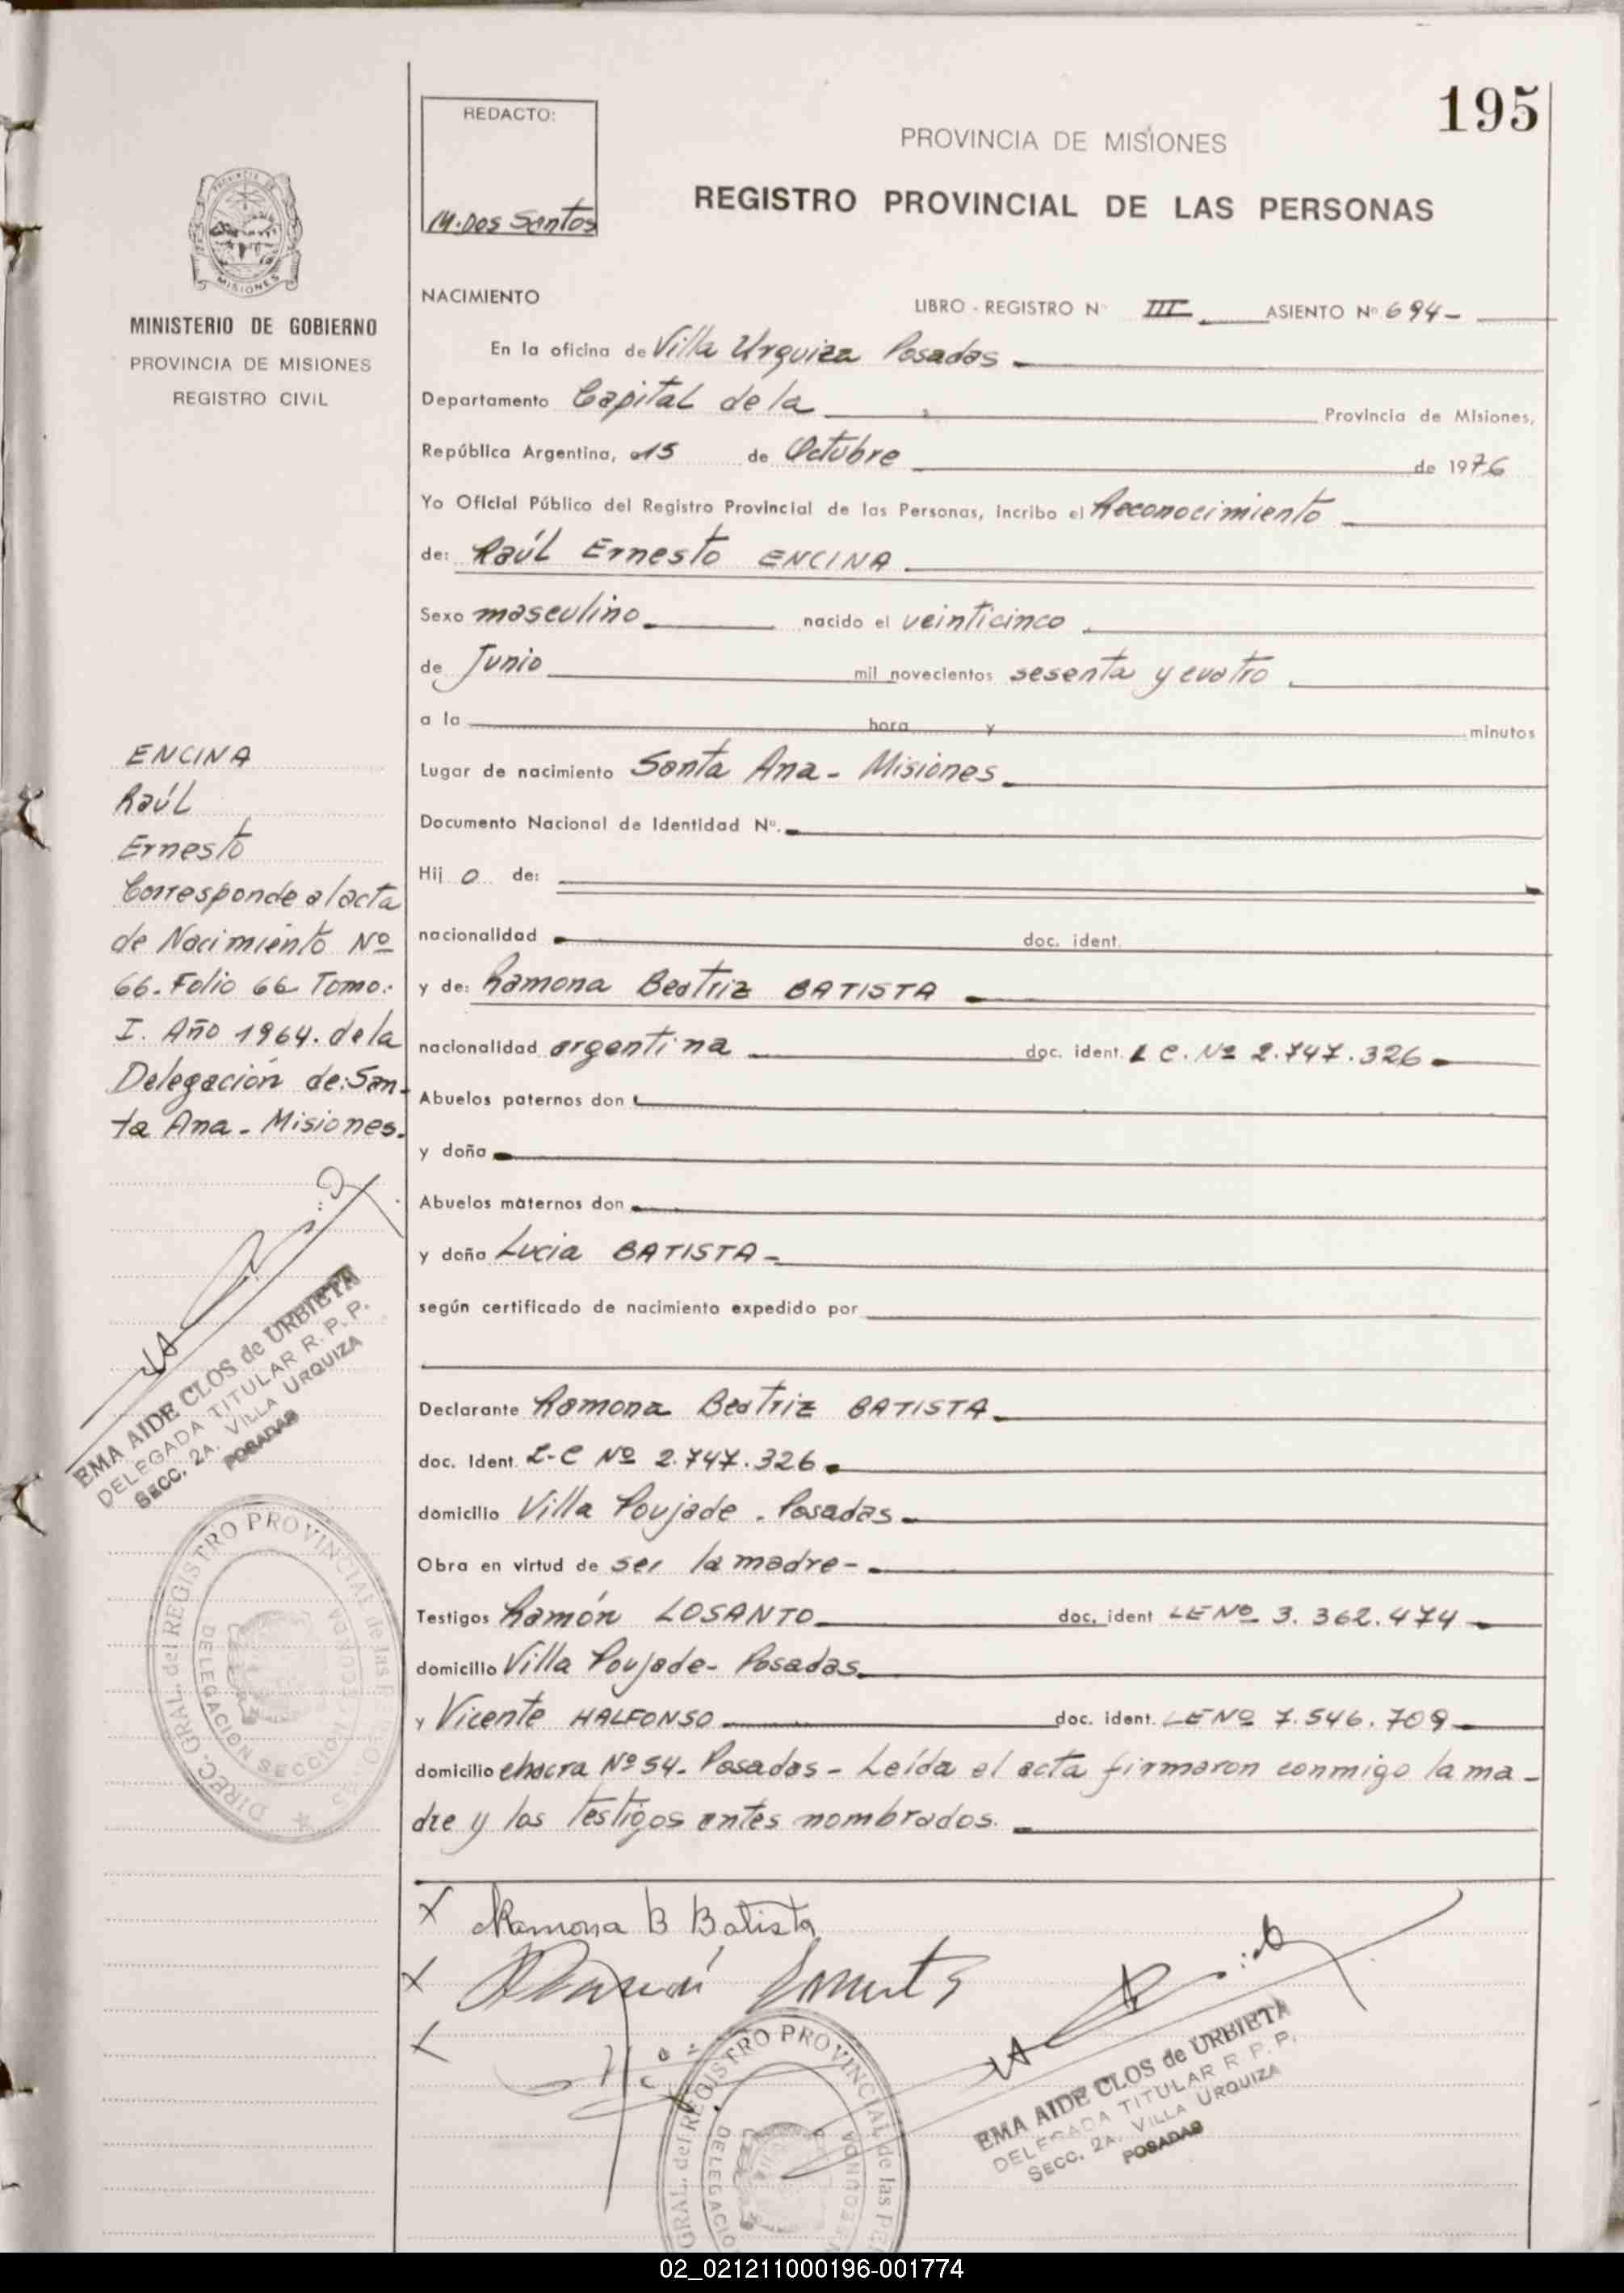 195
REDACTO:
M. Dos Santos
PROVINCIA DE MISIONES
REGISTRO PROVINCIAL DE LAS PERSONAS
PROVINCIA DE
MISIONES
MINISTERIO DE GOBIERNO
PROVINCIA DE MISIONES
REGISTRO CIVIL
NACIMIENTO
LIBRO - REGISTRO Nº III ASIENTO Nº 694-
En la oficina de Villa Urquiza Posadas
Departamento Capital de la Provincia de Misiones,
República Argentina, a 15 de Octubre de 1976
Yo Oficial Público del Registro Provincial de las Personas, incribo el Reconocimiento
de: Raúl Ernesto ENCINA
Sexo masculino nacido el veinticinco
de Junio mil novecientos sesenta y cuatro
a la hora y minutos
Lugar de nacimiento Santa Ana - Misiones
Documento Nacional de Identidad Nº.
Hij o de:
nacionalidad doc. ident.
y de: Ramona Beatriz BATISTA
nacionalidad argentina doc. ident. L C. Nº 2.747.326
Abuelos paternos don
y doña
Abuelos maternos don
y doña Lucia BATISTA -
según certificado de nacimiento expedido por
Declarante Ramona Beatriz BATISTA
doc. Ident. L-C Nº 2.747.326
domicilio Villa Poujade . Posadas
Obra en virtud de ser la madre -
Testigos Ramón LOSANTO doc. ident LE Nº 3.362.474
domicilio Villa Poujade - Posadas
y Vicente HALFONSO doc. ident. LE Nº 7.546.709
domicilio chacra Nº 54. Posadas - Leída el acta firmaron conmigo la ma-
dre y los testigos antes nombrados.
ENCINA
Raúl
Ernesto
Corresponde al acta
de Nacimiento Nº
66. Folio 66 Tomo:
I. Año 1964. de la
Delegación de: San-
ta Ana - Misiones.
EMA AIDE CLOS de URBIETA
DELEGADA TITULAR R. P. P.
SECC. 2A. VILLA URQUIZA
POSADAS
DIREC. GRAL. del REGISTRO PROVINCIAL de las
DELEGACION SECCION SEGUNDA
X Ramona B Batista
X Ramón
X
EMA AIDE CLOS de URBIETA
DELEGADA TITULAR R. P. P.
SECC. 2A. VILLA URQUIZA
POSADAS
GRAL. del REGISTRO PROVINCIAL de las
02_021211000196-001774